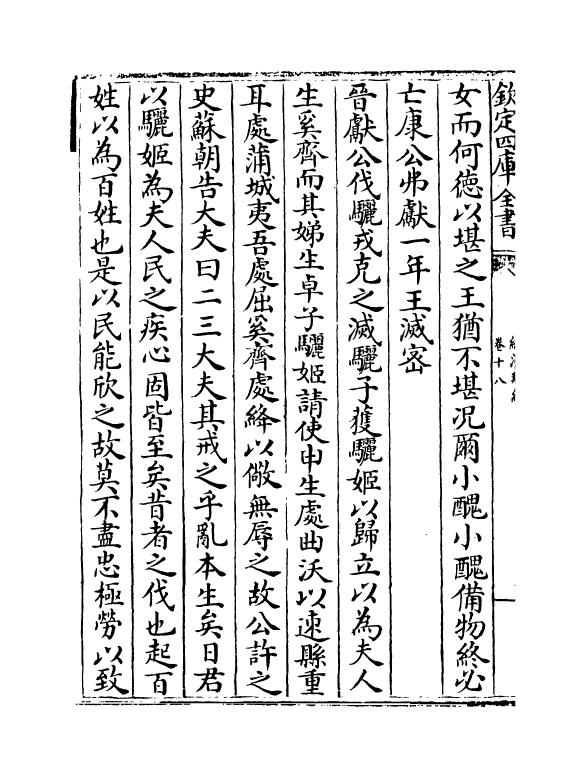 欽定四庫全書
卷十八
女而何徳以堪之王猶不堪况爾小醜小醜備物終必
亡康公弗獻一年王滅密
晉獻公伐驪戎克之滅驪子獲驪姬以歸立以為夫人
生奚齊而其娣生卓子驪姬請使申生處曲沃以速縣重
耳處蒲城夷吾處屈奚齊處絳以儆無辱之故公許之
史蘇朝告大夫曰二三大夫其戒之乎亂本生矣日君
以驪姬為夫人民之疾心固皆至矣昔者之伐也起百
姓以為百姓也是以民能欣之故莫不盡忠極勞以致